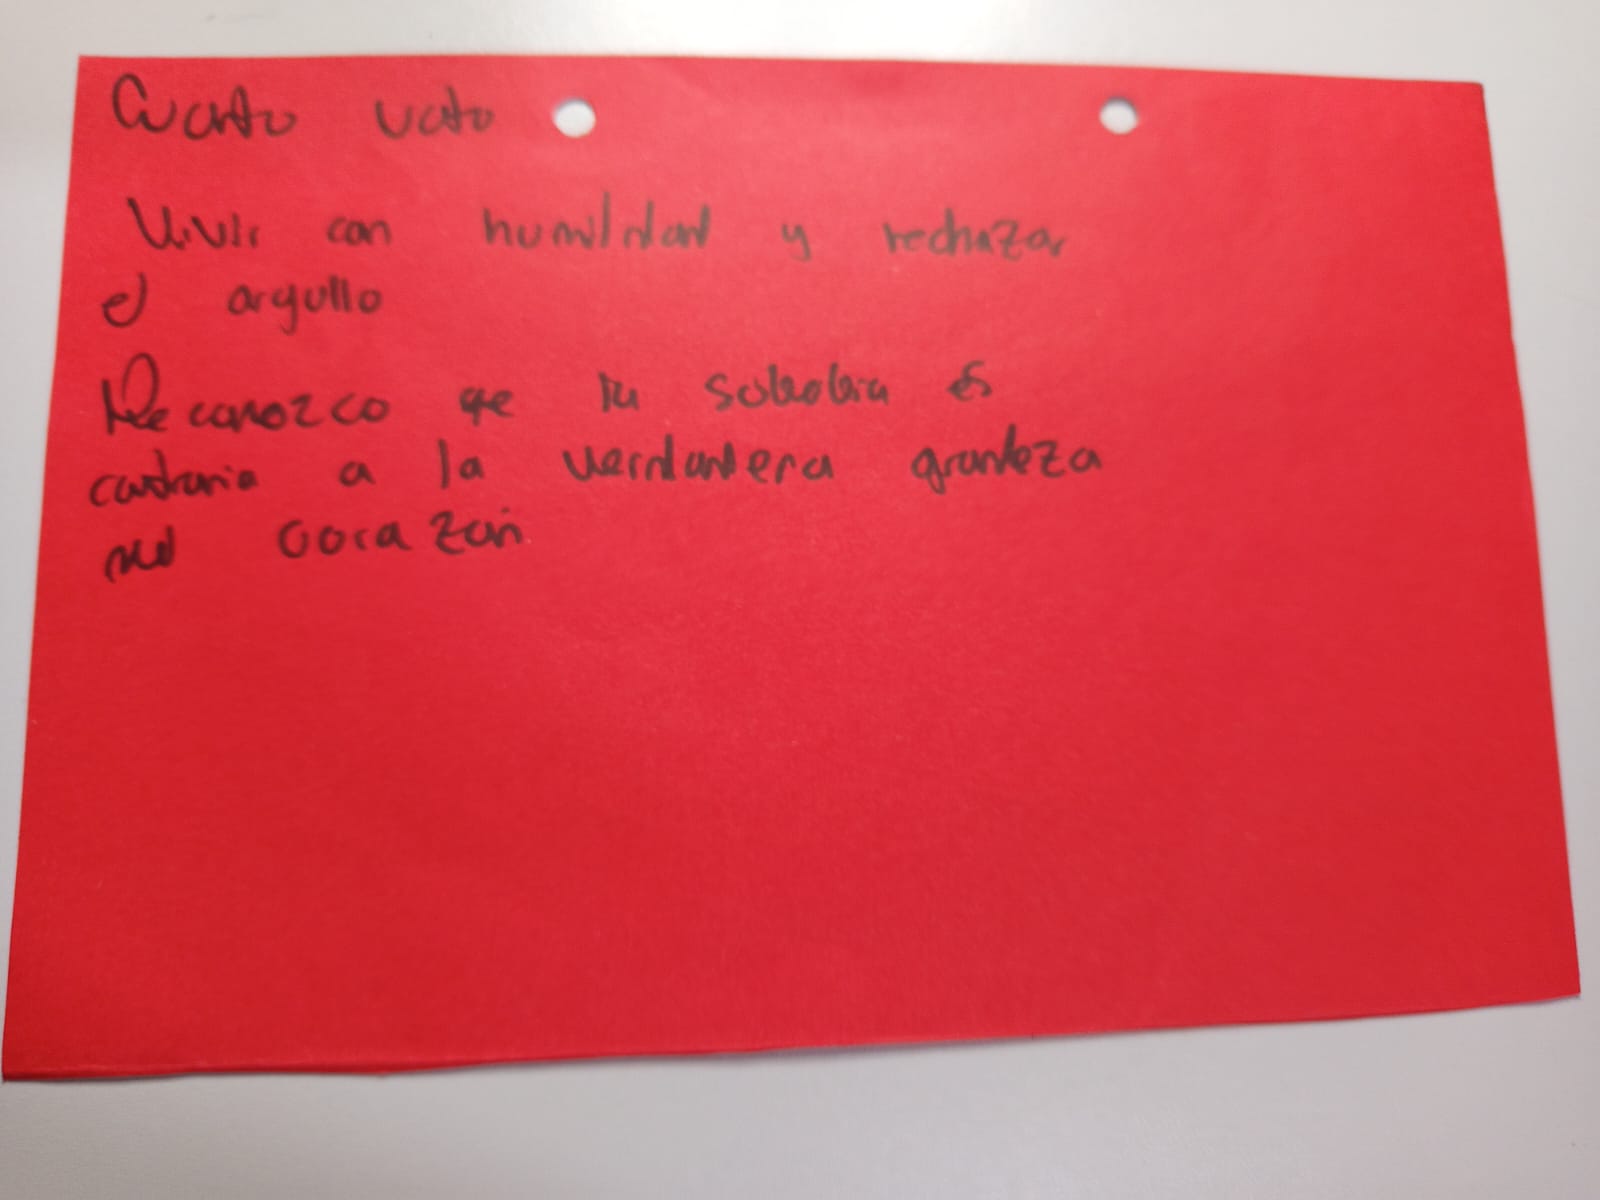 Cuarto voto
Vivir con humildad y rechazar
el orgullo
Reconozco que la soberbia es
contraria a la verdadera grandeza
del corazón